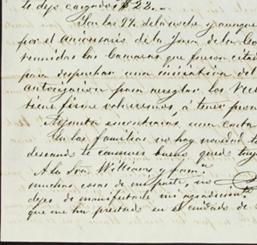 te dejo cargados $22.–
Son las 9½ de la noche y aunque
por el aniversario de la Jura de la
reunidas las Camaras que fueron citad
para despachar una iniciativa del
autorizacion para arreglar los
tiene firme volveremos á tener
Adjunta encontrarás una carta
En las familias no hay novedad
deseando te conserves bueno quedo
A la Sra. Williams y fama
muchas cosas de mi parte, no
dejes de manifestarle mi agradecim
que me ha prestado en el cuidado de